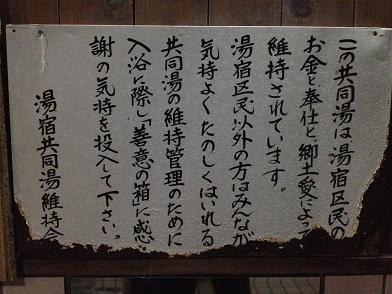 この共同湯は湯宿区民の
お金と奉仕と郷土愛によって
維持されています。
湯宿区民以外の方はみんなが
気持よくたのしくはいれる
共同湯の維持管理のために
入浴に際し「善意の箱」に感
謝の気持を投入して下さい。
湯宿共同湯維持会